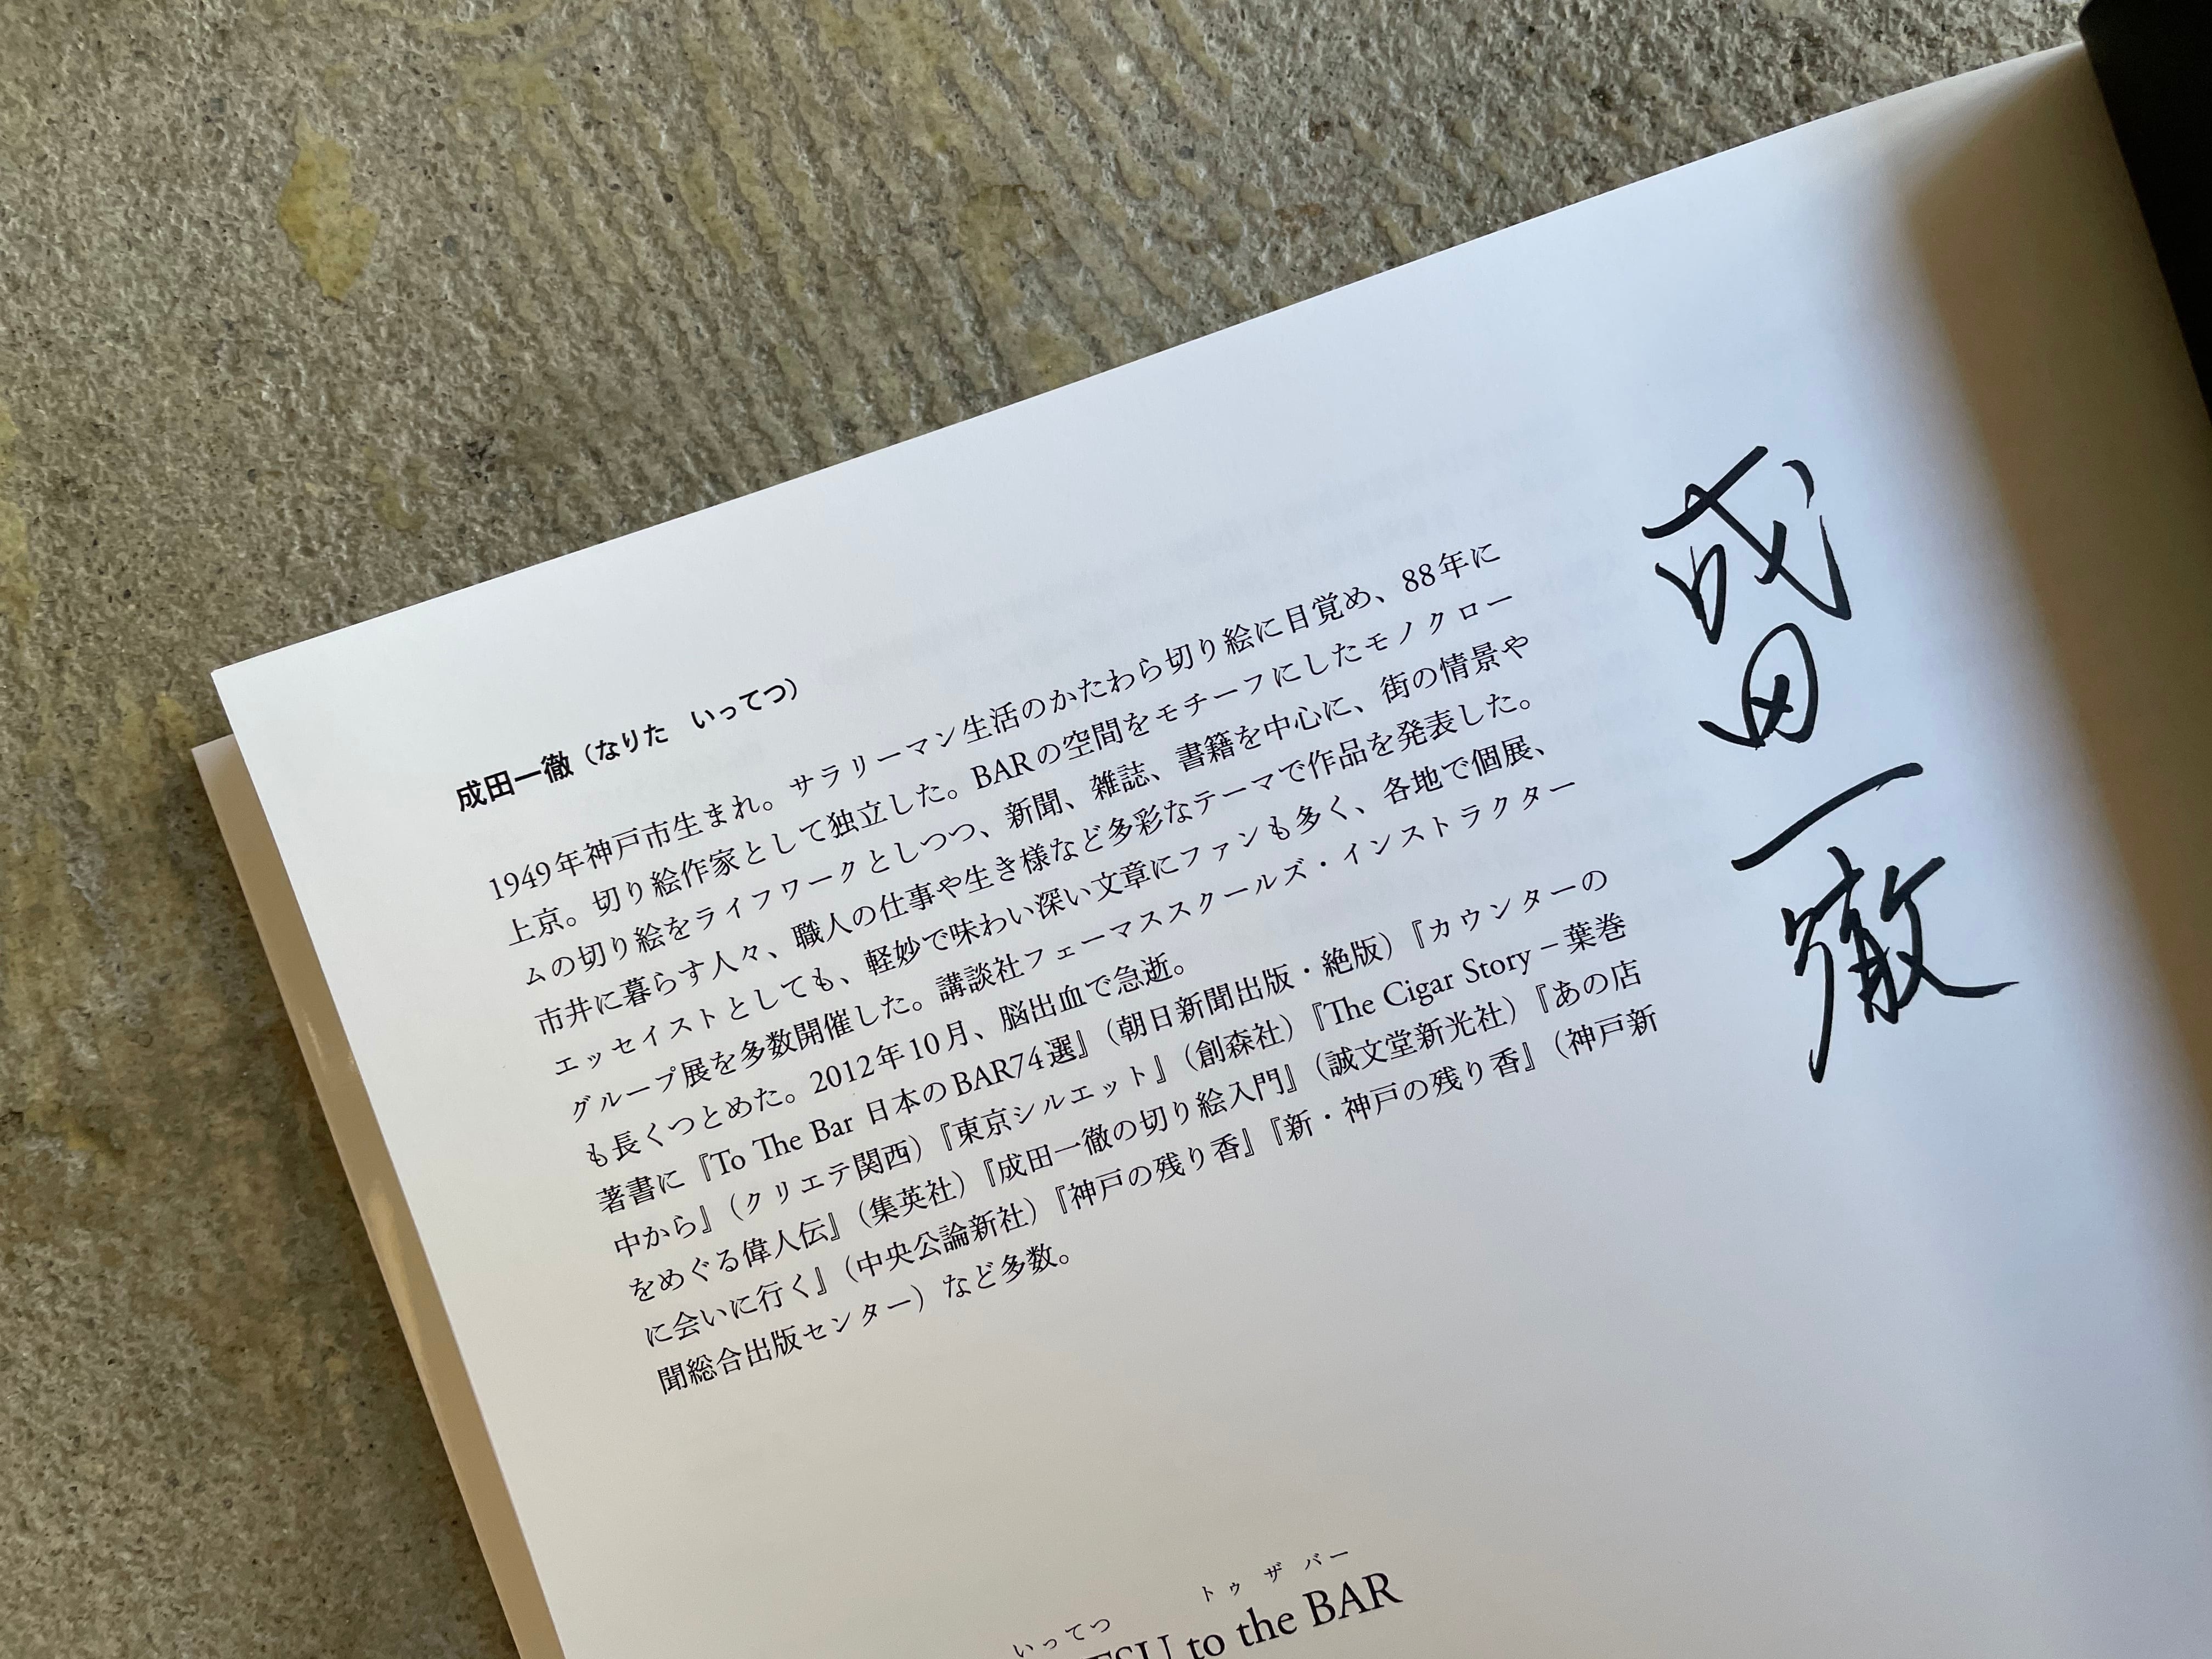 成田一徹（なりた　いってつ）
1949年神戸市生まれ。サラリーマン生活のかたわら切り絵に目覚め、88年に
上京。切り絵作家として独立した。BARの空間をモチーフにしたモノクロー
ムの切り絵をライフワークとしつつ、新聞、雑誌、書籍を中心に、街の情景や
市井に暮らす人々、職人の仕事や生き様など多彩なテーマで作品を発表した。
エッセイストとしても、軽妙で味わい深い文章にファンも多く、各地で個展、
グループ展を多数開催した。講談社フェーマススクールズ・インストラクター
も長くつとめた。2012年10月、脳出血で急逝。
著書に『To The Bar 日本のBAR74選』（朝日新聞出版・絶版）『カウンターの
中から』（クリエテ関西）『東京シルエット』（創森社）『The Cigar Story－葉巻
をめぐる偉人伝』（集英社）『成田一徹の切り絵入門』（誠文堂新光社）『あの店
に会いに行く』（中央公論新社）『神戸の残り香』『新・神戸の残り香』（神戸新
聞総合出版センター）など多数。
成田一徹
いってつ トゥ ザ バー
to the BAR